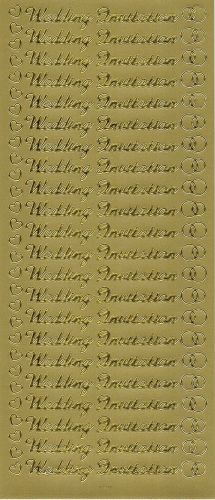 Wedding Invitation
Wedding Invitation
Wedding Invitation
Wedding Invitation
Wedding Invitation
Wedding Invitation
Wedding Invitation
Wedding Invitation
Wedding Invitation
Wedding Invitation
Wedding Invitation
Wedding Invitation
Wedding Invitation
Wedding Invitation
Wedding Invitation
Wedding Invitation
Wedding Invitation
Wedding Invitation
Wedding Invitation
Wedding Invitation
Wedding Invitation